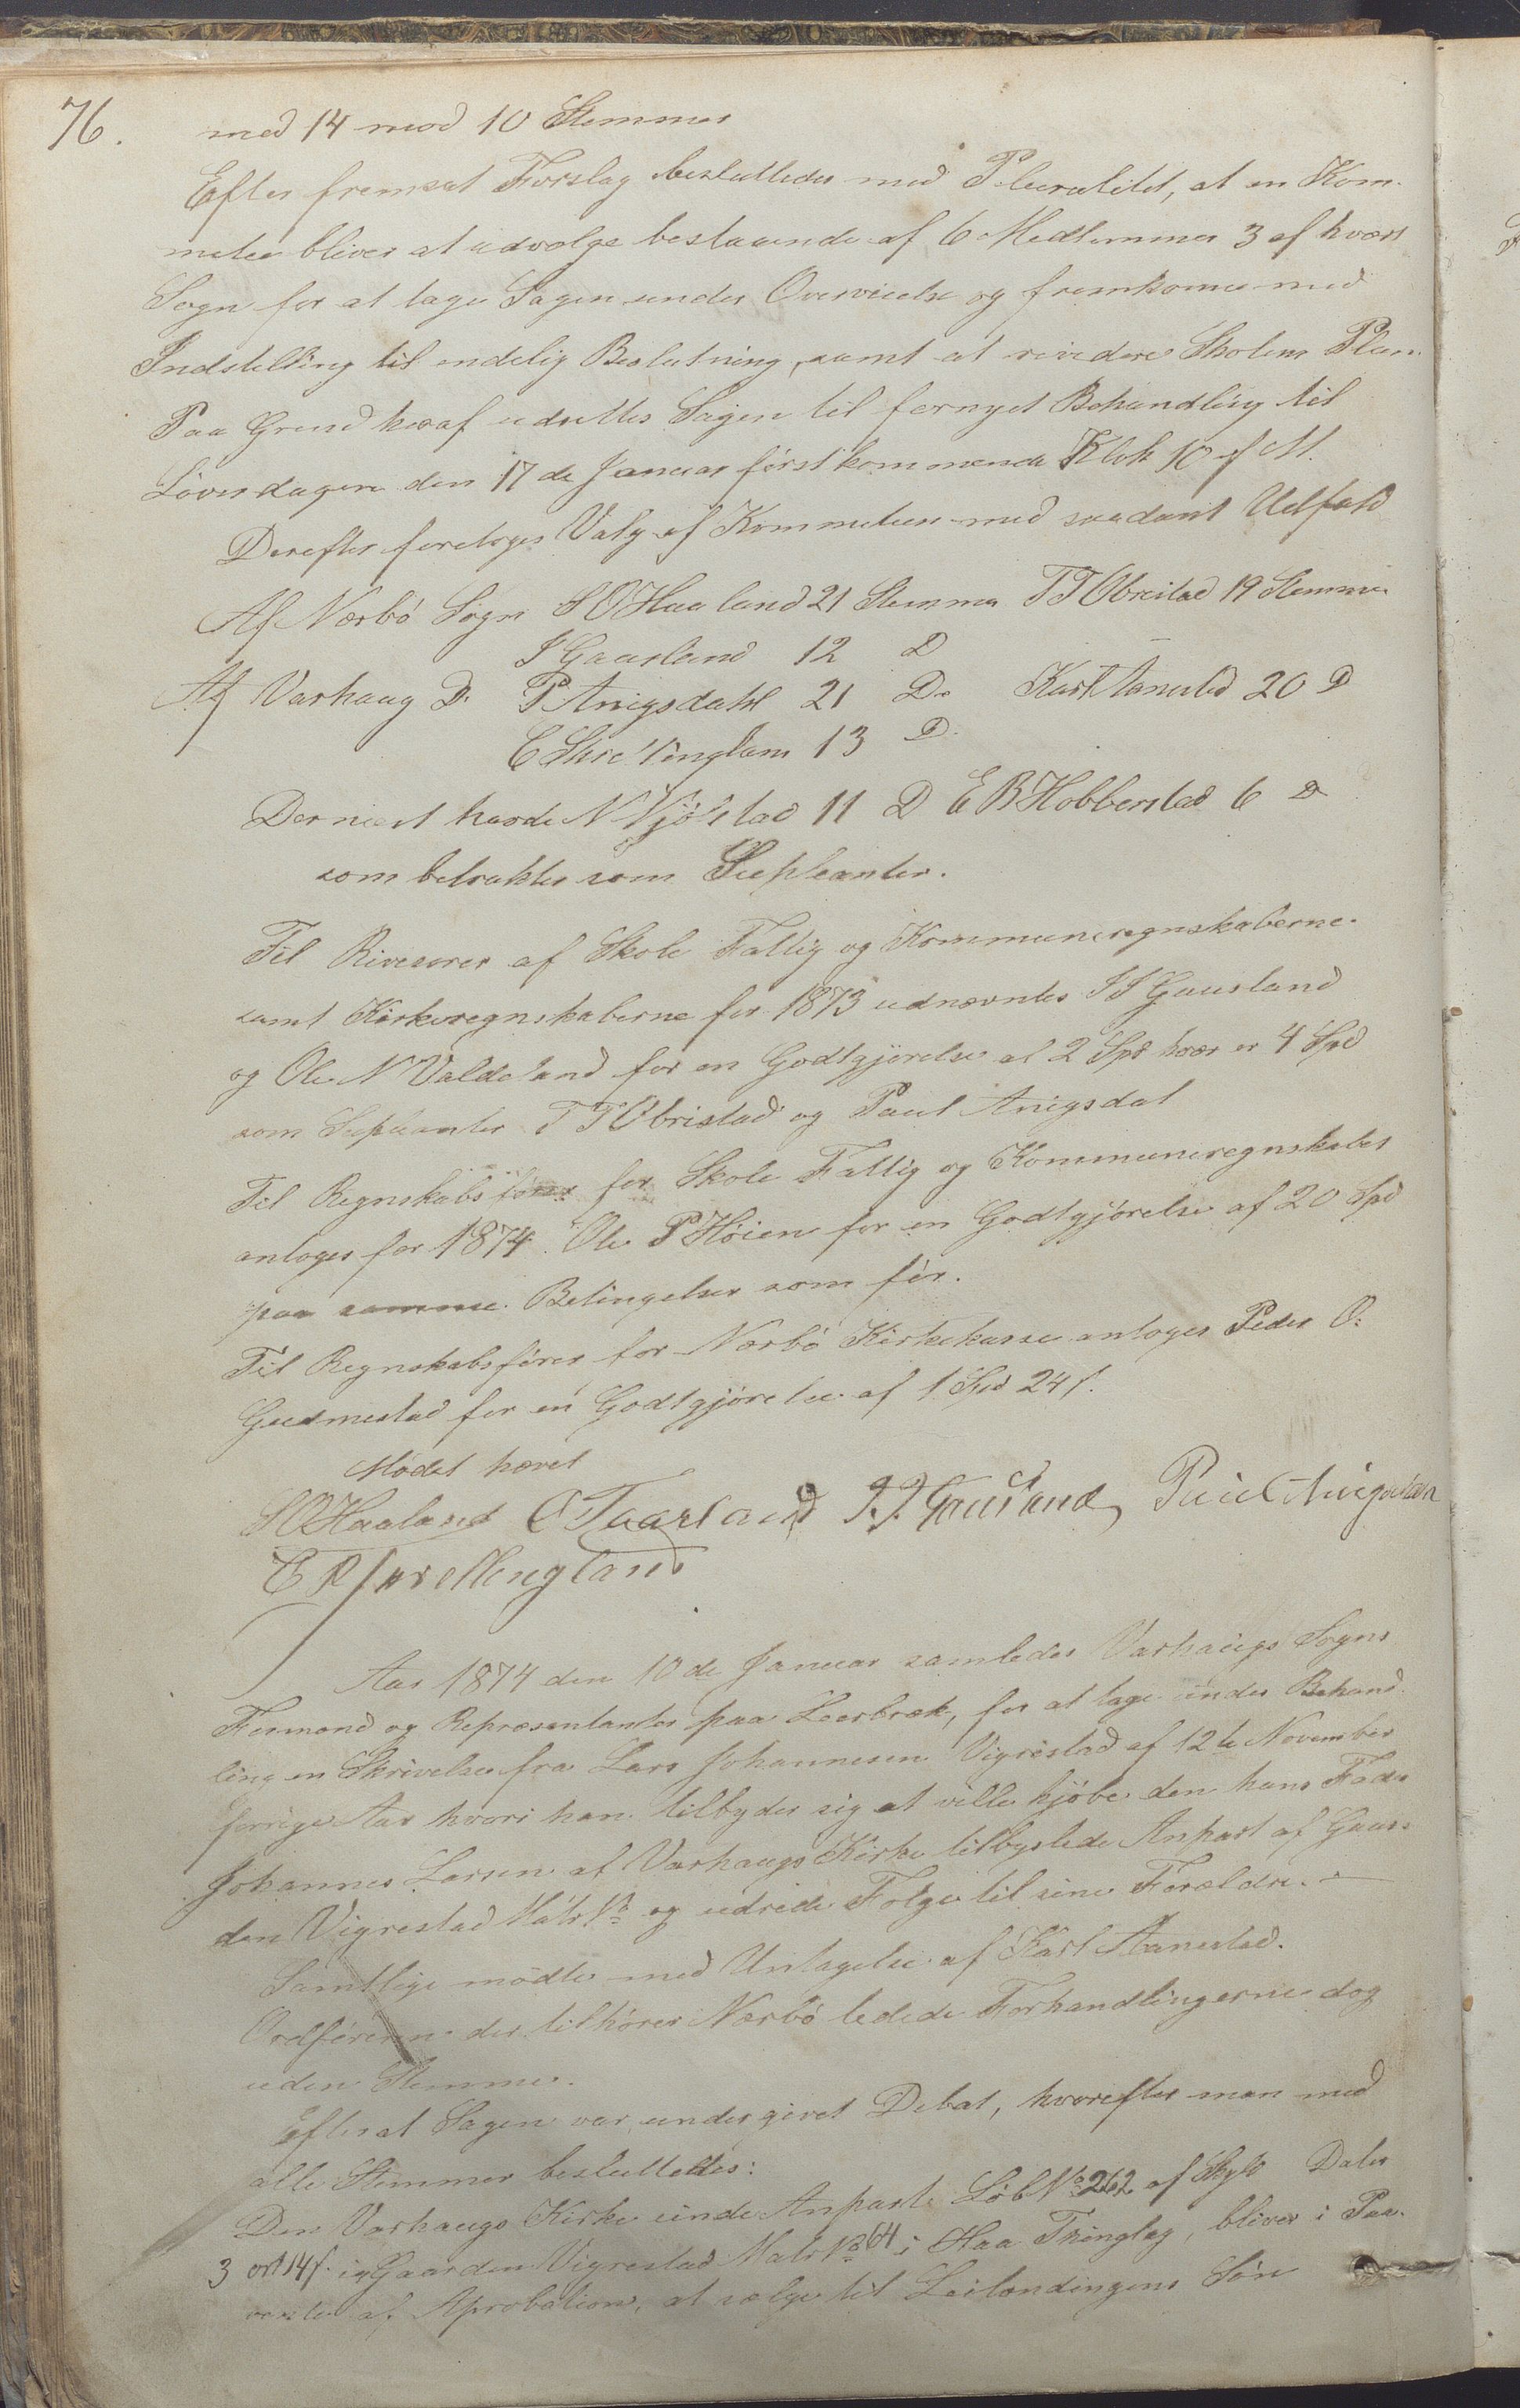 76.
med 14 mod 10 Stemmer
Efter fremsat Forslag besluttedes med Pluralitet, at en Kom-
metee bliver at udvælge bestaaende af 6 Medlemmer 3 af hvert
Sogn for at tage Sagen under Overveielse og fremkomme med
Indstilling til endelig Beslutning, samt at revidere Skolens Plan.
Paa Grund heraf udsattes Sagen til fornyet Behandling til
Löverdagen den 17de Januar förstkommende Klok 10 f M.
Derefter foretoges Valg af Kommeteen med saadant Udfald
Af Nærbö Sogn S O Haaland 21 Stemmer T T Obrestad 19 Stemmer
I Gausland 12 D
Af Varhaug Do P Anigsdahl 21 Do Karl Aanestad 20 D
C Skretlingland 13 D.
Dernæst havde N Njölstad 11 D E B Hobberstad 6 D
som betraktes som Supleanter.
Til Revesorer af Skole Fattig og Kommuneregnskaberne
samt Kirkeregnskaberne for 1873 udnævntes I I Gausland
og Ole N Valdeland for en Godtgjörelse af 2 Spd hver er 4 Spd
som Supleanter T T Obristad og Paul Anigsdal
Til Regnskabsförer for Skole Fattig og Kommuneregnskabet
antoges for 1874. Ole P Höien for en Godtgjörelse af 20 Spd
paa samme Betingelser som för.
Til Regnskabsförer for Nærbö Kirkekasse antoges Peder O.
Gudmestad for en Godtgjörelse af 1 Spd 24 s.
Mödet hævet
S O Haaland O Taarland I. I. Gausland Paul Anigsdal
C R Skretlingland
Aar 1874 den 10de Januar samledes Varhaugs Sogns
Formænd og Repræsentanter paa Leerbræk, for at tage under Behand-
ling en Skrivelse fra Lars Johannesen Vigrestad af 12te November
forrige Aar hvori han tilbyder sig at ville kjöbe den hans Fader
Johannes Larsen af Varhaugs Kirke tilbyslede Anpart af Gaar-
den Vigrestad Matr No og udrede Folge til sine Forældre. —
Samtlige mödte med Untagelse af Karl Aanestad.
Ordföreren der tilhörer Nærbö ledede Forhandlingerne dog
uden Stemme.
Efter at Sagen var undergivet Debat, hvorefter man med
alle Stemmer besluttedes:
Den Varhaugs Kirke eiende Anpart Löb No 262 af Skyld Daler
3 ort 14 s. i Gaarden Vigrestad Matr No 64 i Haa Thinglag, bliver i Paa-
vente af Aprobation, at sælge til Leilændingens Sön